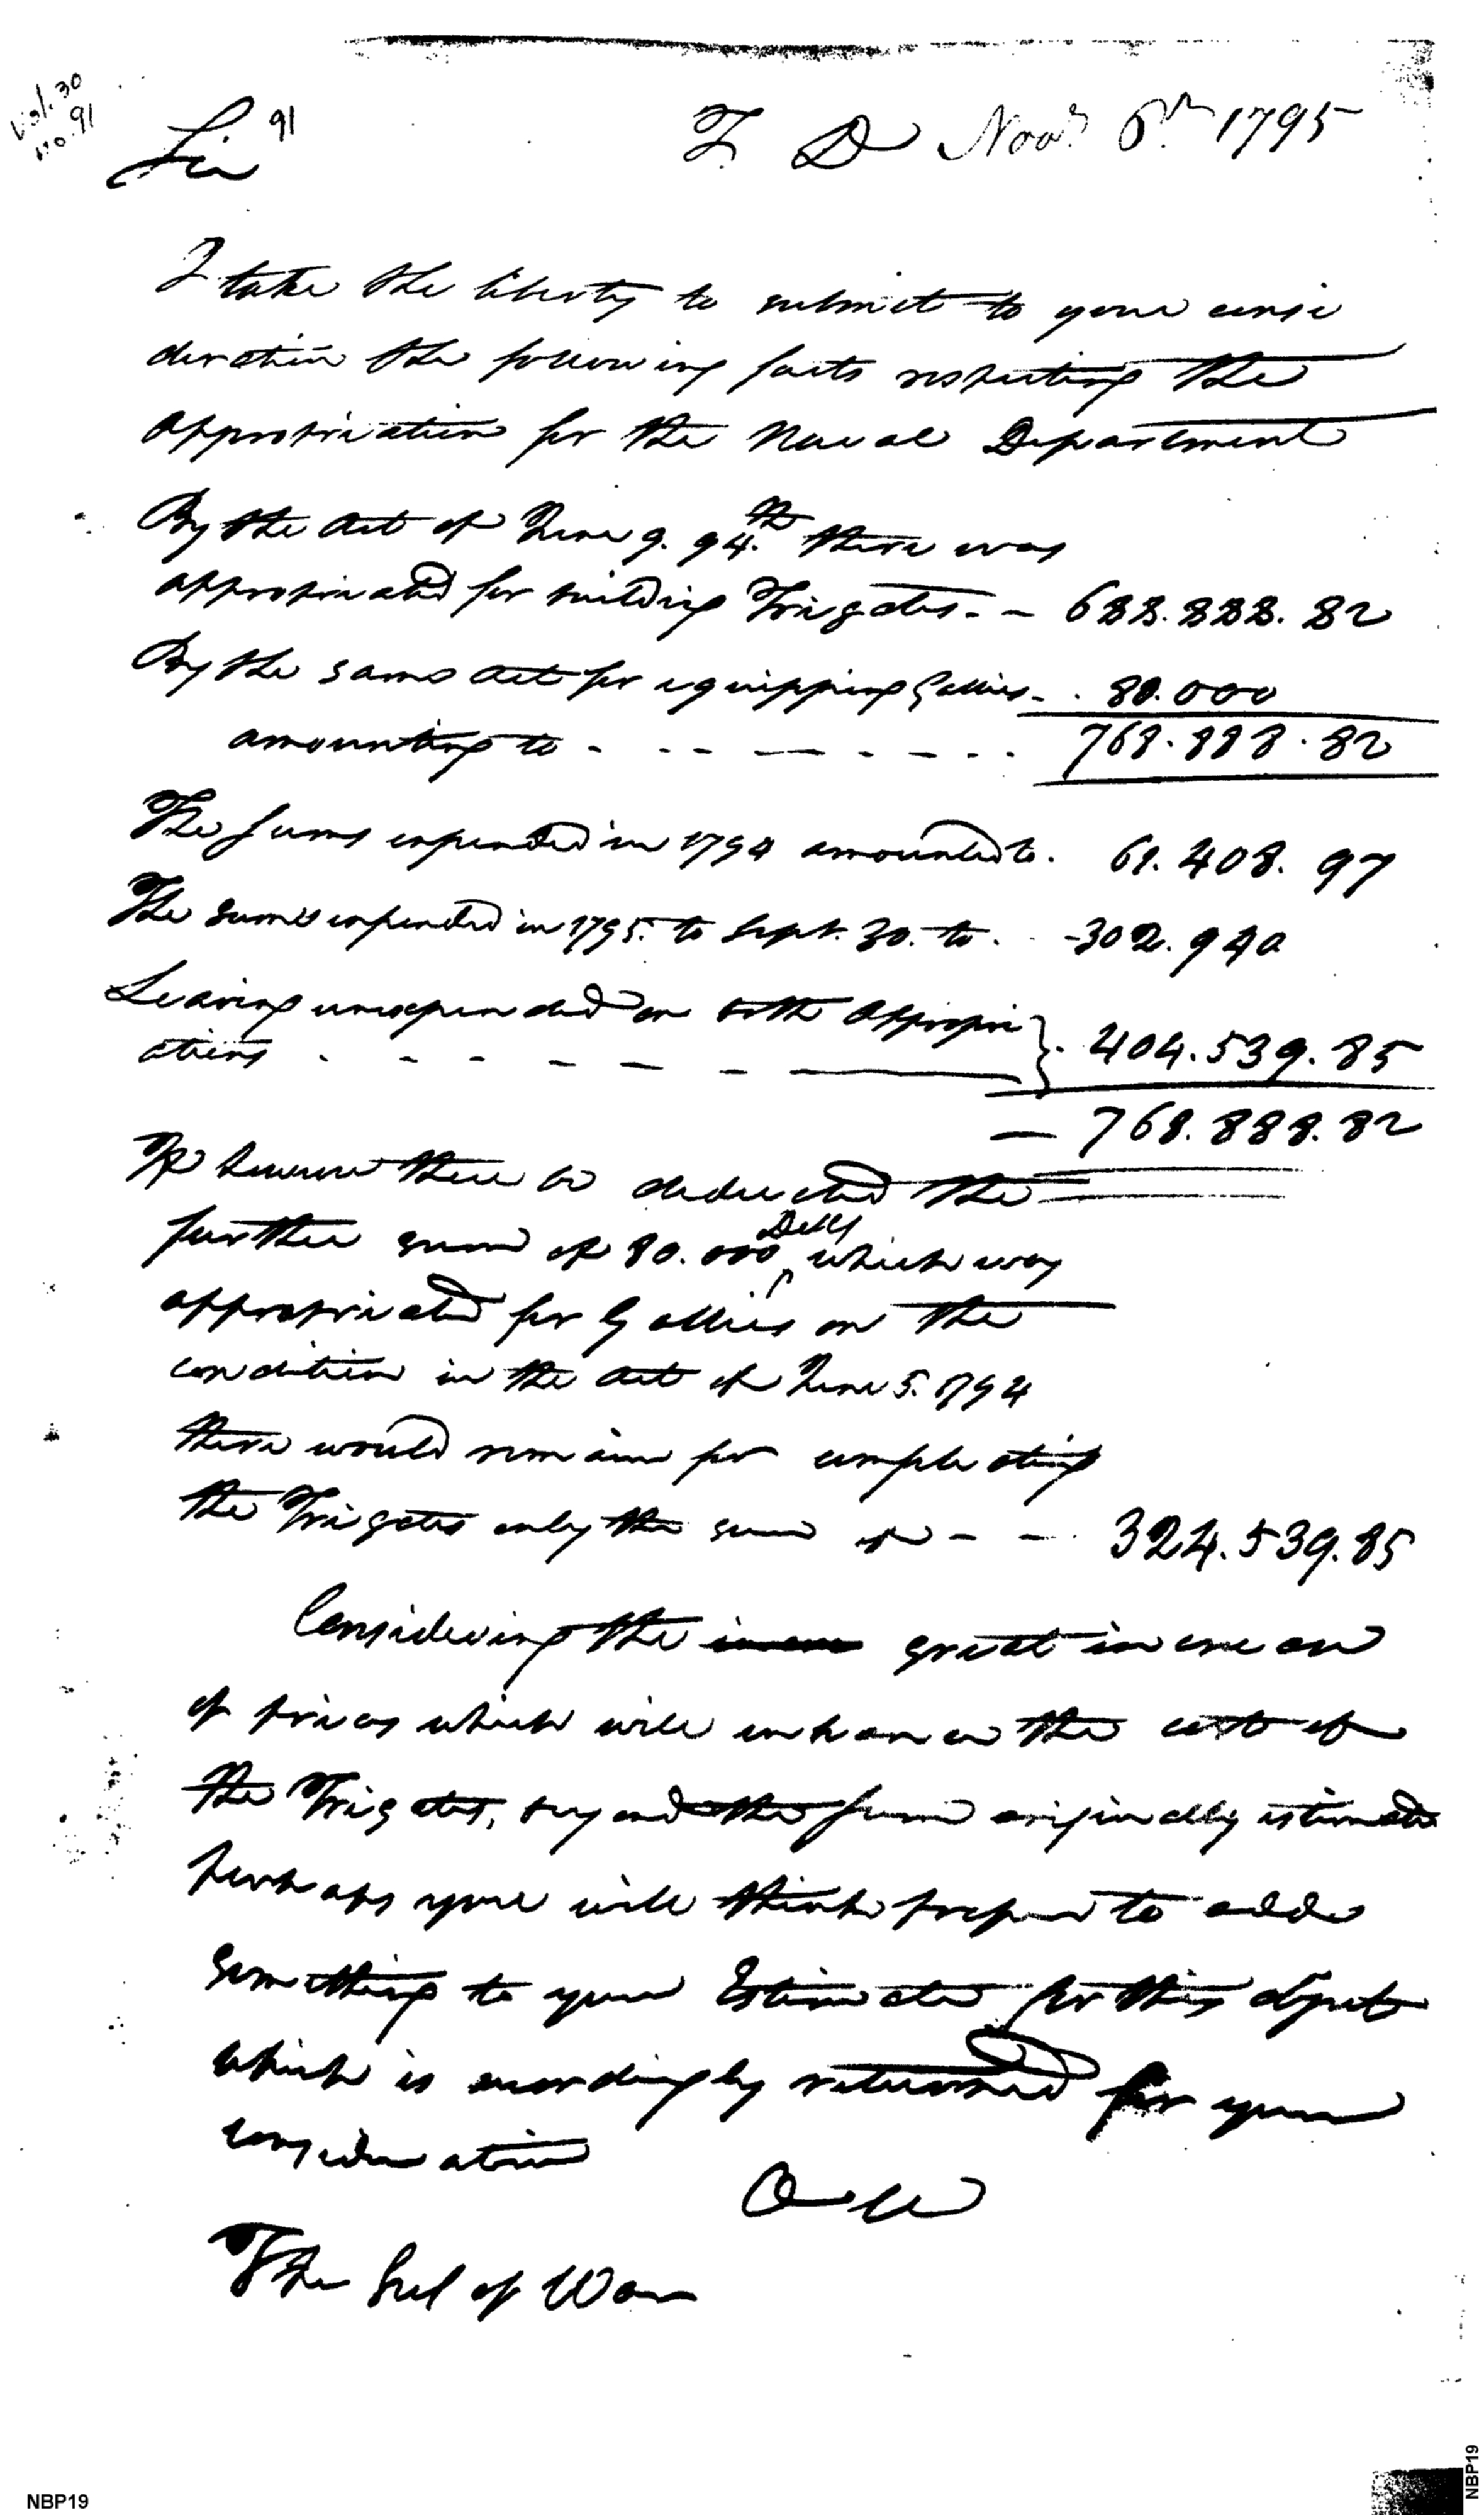 Vol. 30
no. 91
Sir 91 T D Novr 6th 1795
I take the liberty to submit to your consi
deration the following facts respecting the
appropriation for the Naval Department
By the Act of June 9. 94.th there was
appropriated for building Frigates. - - 688.888. 82
By the same Act for equipping Gallies - . 80.000
amounting to - . - - — - . . . 768.888.82
The sums expended in 1794 amounted to . 61.408. 97
The sums expended in 1795. to Sept. 30. to . - 302.940
Leaving unexpended on both appropri
ations . - - - — - — 404.539.85
— 768.888.82
If however there be deducted the
further sum of 80.000 Dolls which was
appropriated for Gallies on the
condition in the Act of June 5. 1794
there would remain for compleating
the Frigates only the sum of - - . 324.539.85
Considering the great increase
of prices which will enhance the cost of
the Frigates, beyond the sum originally estimated
perhaps you will think proper to add
something to your Estimate for this object
which is accordingly returned for your
consideration
O W
The Sec of War
NBP19
NBP19